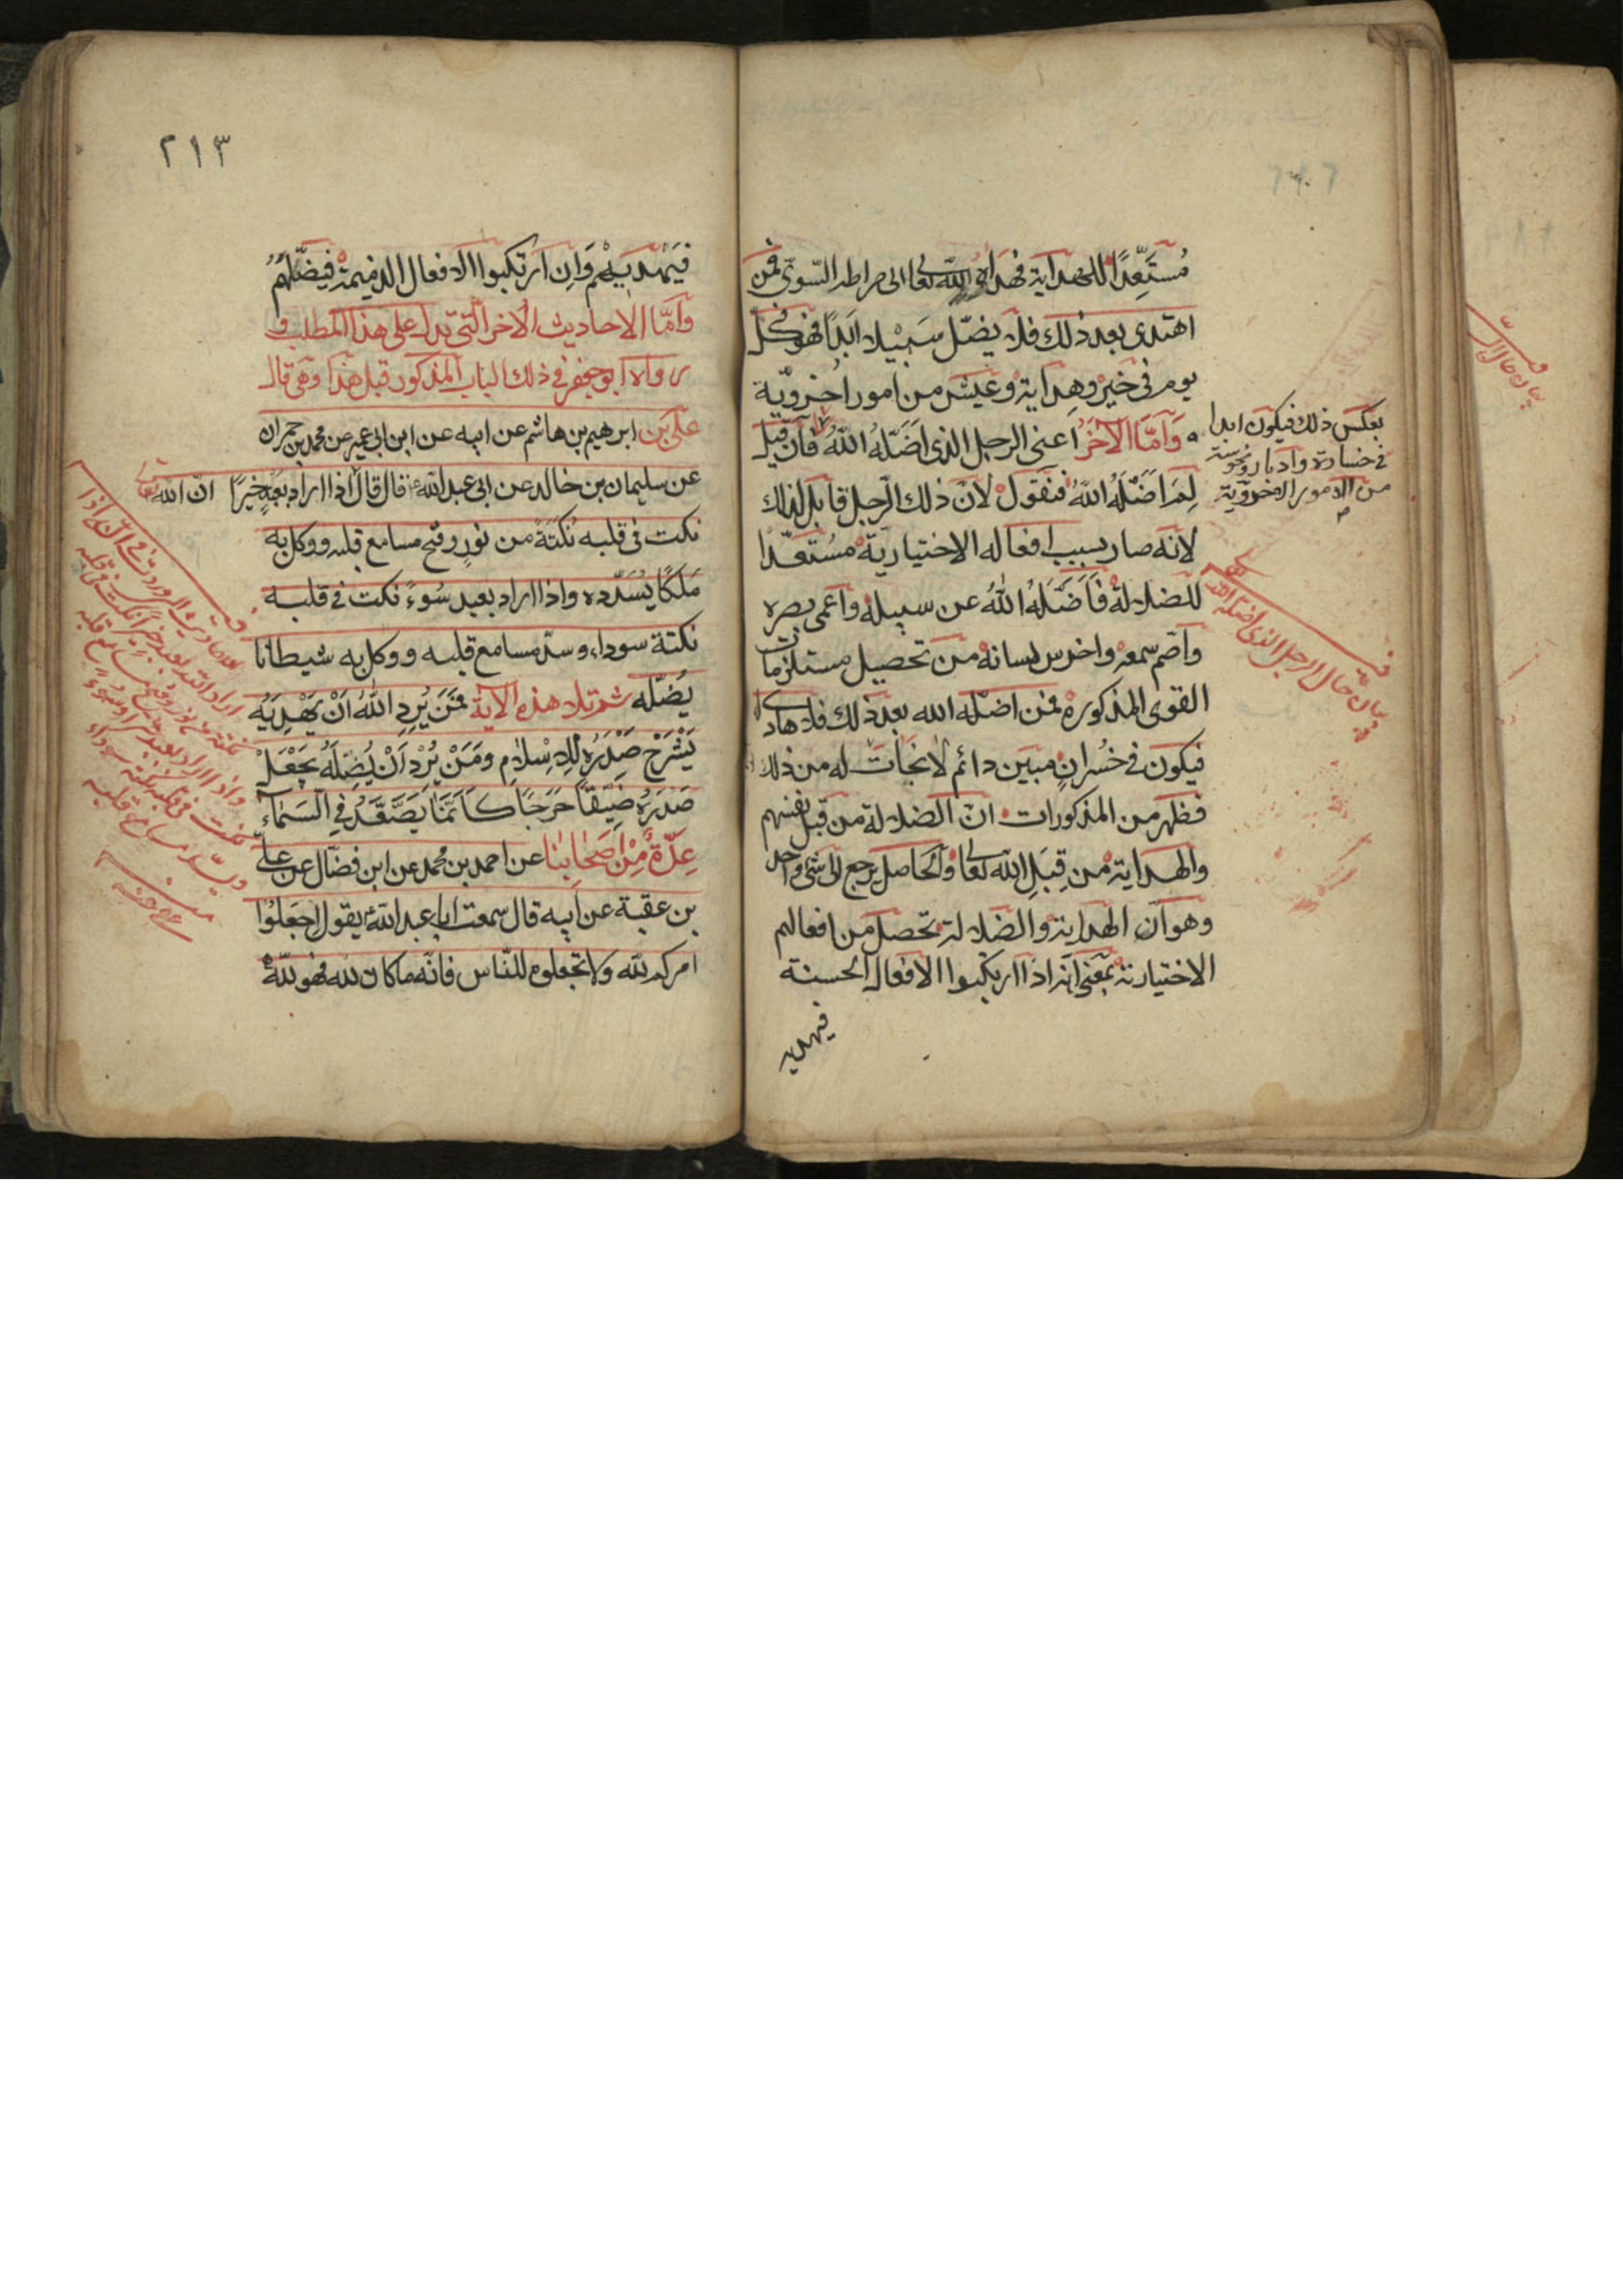 مُستَعِّدًا للهداية فهداه الله تعالى الى صراطه السّوىّ فمن
اهتدى بعد ذلك فلا يضلّ سَبيْلا ابَدًا فهو فى كلّ
يوم فى خيرٍ وهِدايةٍ وعيش من امور اُخرويّة
وَامّا الآخَرُ اعنى الرجل الذى اَضَلّهُ اللهُ فان قيل
لِمَ اَضَلّهُ اللهُ فنقول لانّ ذلك الرّجل قابل لذلك
لانّه صار بسبب افعاله الاختياريّة مُستَعدًّا
للضلالة فَاَضَلّهُ اللهُ عن سبيله واعمى بصره
واصمّ سمعه واخرس لسانه من تحصيل مستلزمات
القوى المذكورة فمن اضلّه الله بعد ذلك فلا هادى
فيكون فى خُسرانٍ مبين دائم لا نجات له من ذلك
فظهر من المذكورات انّ الضلالة من قبل نفسهم
والهداية من قِبَلِ الله تعالى والحاصل يرجع الى شئ واحد
وهو انّ الهداية والضلالة تحصل من افعالهم
الاختيارية بمعنى انه اذا ارتكبوا الافعال الحسنة
فيهديهم
بعكس ذلك فيكون ابدا
فى خسارة وادبار ونحوسة
من الامور الاخرويّة
بيان حال الرجل الذى اضلّه الله
بيان حال
٢١٣
فيَهْديهم وَاِن ارتكبوا الافعال الذميمة فيضّلهُم
وَامّا الاحاديث الاخر الّتى تدل على هذا المطلب و
رواه ابو جعفر فى ذلك الباب المذكور قبل هذا وهى قال
علىّ بن ابرهيم بن هاشم عن ابيه عن ابن ابى عمير عن محمد بن حمران
عن سليمان بن خالد عن ابى عبد الله ع قال قال اذا اراد بعبدٍ خيرًا انّ الله تعالى
نكت فى قلبه نُكتَةً من نورٍ وفتح مسامع قلبه ووكل به
مَلَكًا يُسَدّده واذا اراد بعبد سُوءً نكت فى قلبه
نكتة سوداء وسدّ مسامع قلبه ووكل به شيطانا
يُضلّه ثم تلا هذه الاية فَمَنْ يُرِدِ اللهُ اَنْ يَهْدِيَهُ
يَشْرَحْ صَدْرَهُ لِلاِسْلامِ ومَنْ يُرِدْ اَنْ يُضِلَّهُ يَجْعَلْ
صَدرَهُ ضَيّقًا حَرَجًا كَاَنَّمَا يَصَّعَّدُ فِى السَّمَاءِ
عِدّةٌ مِنْ اَصْحَابِنَا عن احمد بن محمد عن ابن فضّال عن علىّ
بن عقبة عن ابيه قال سمعت ابا عبد الله ع يقول اجعَلُوا
امركم لله ولا تجعلوه للنّاس فانّه ما كان لله فهو لله